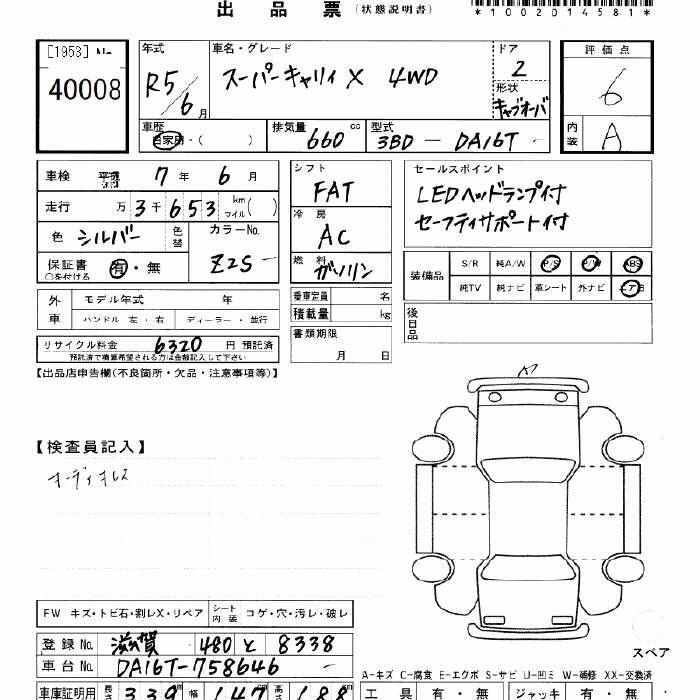 出品票(状態説明書)
*1002014581*
[1953] No.
40008
年式 R5/6月
車名・グレード スーパーキャリィ X 4WD
ドア 2
形状 キャブオーバ
評価点 6
内装 A
車歴 自家用・( )
排気量 660 cc
型式 3BD-DA16T-
車検 7年 6月
走行 万 3千 6 5 3 km マイル( )
色 シルバー
色替
カラーNo. Z2S-
保証書 有・無
○を付ける
シフト FAT
冷房 AC
燃料 ガソリン
セールスポイント
LEDヘッドランプ付
セーフティサポート付
装備品 S/R 純A/W P/S P/W ABS
純TV 純ナビ 革シート 外ナビ エアB
外車 モデル年式 年
ハンドル 左・右 ディーラー・並行
乗車定員 名
積載量 kg
後日品
リサイクル料金 6320 円 預託済
預託済で精算希望される方は金額記入して下さい
書類期限 月 日
【出品店申告欄(不良箇所・欠品・注意事項等)】
【検査員記入】
オーディオレス
FW キズ・トビ石・割レX・リペア シート内装 コゲ・穴・汚レ・破レ
登録No. 滋賀 480 と 8338
車台No. DA16T-758646-
スペア
A-キズ C-腐食 E-エクボ S-サビ U-凹ミ W-補修 XX-交換済
車庫証明用 長さ 339 cm 幅 147 cm 高さ 188 cm
工具 有・無 ジャッキ 有・無